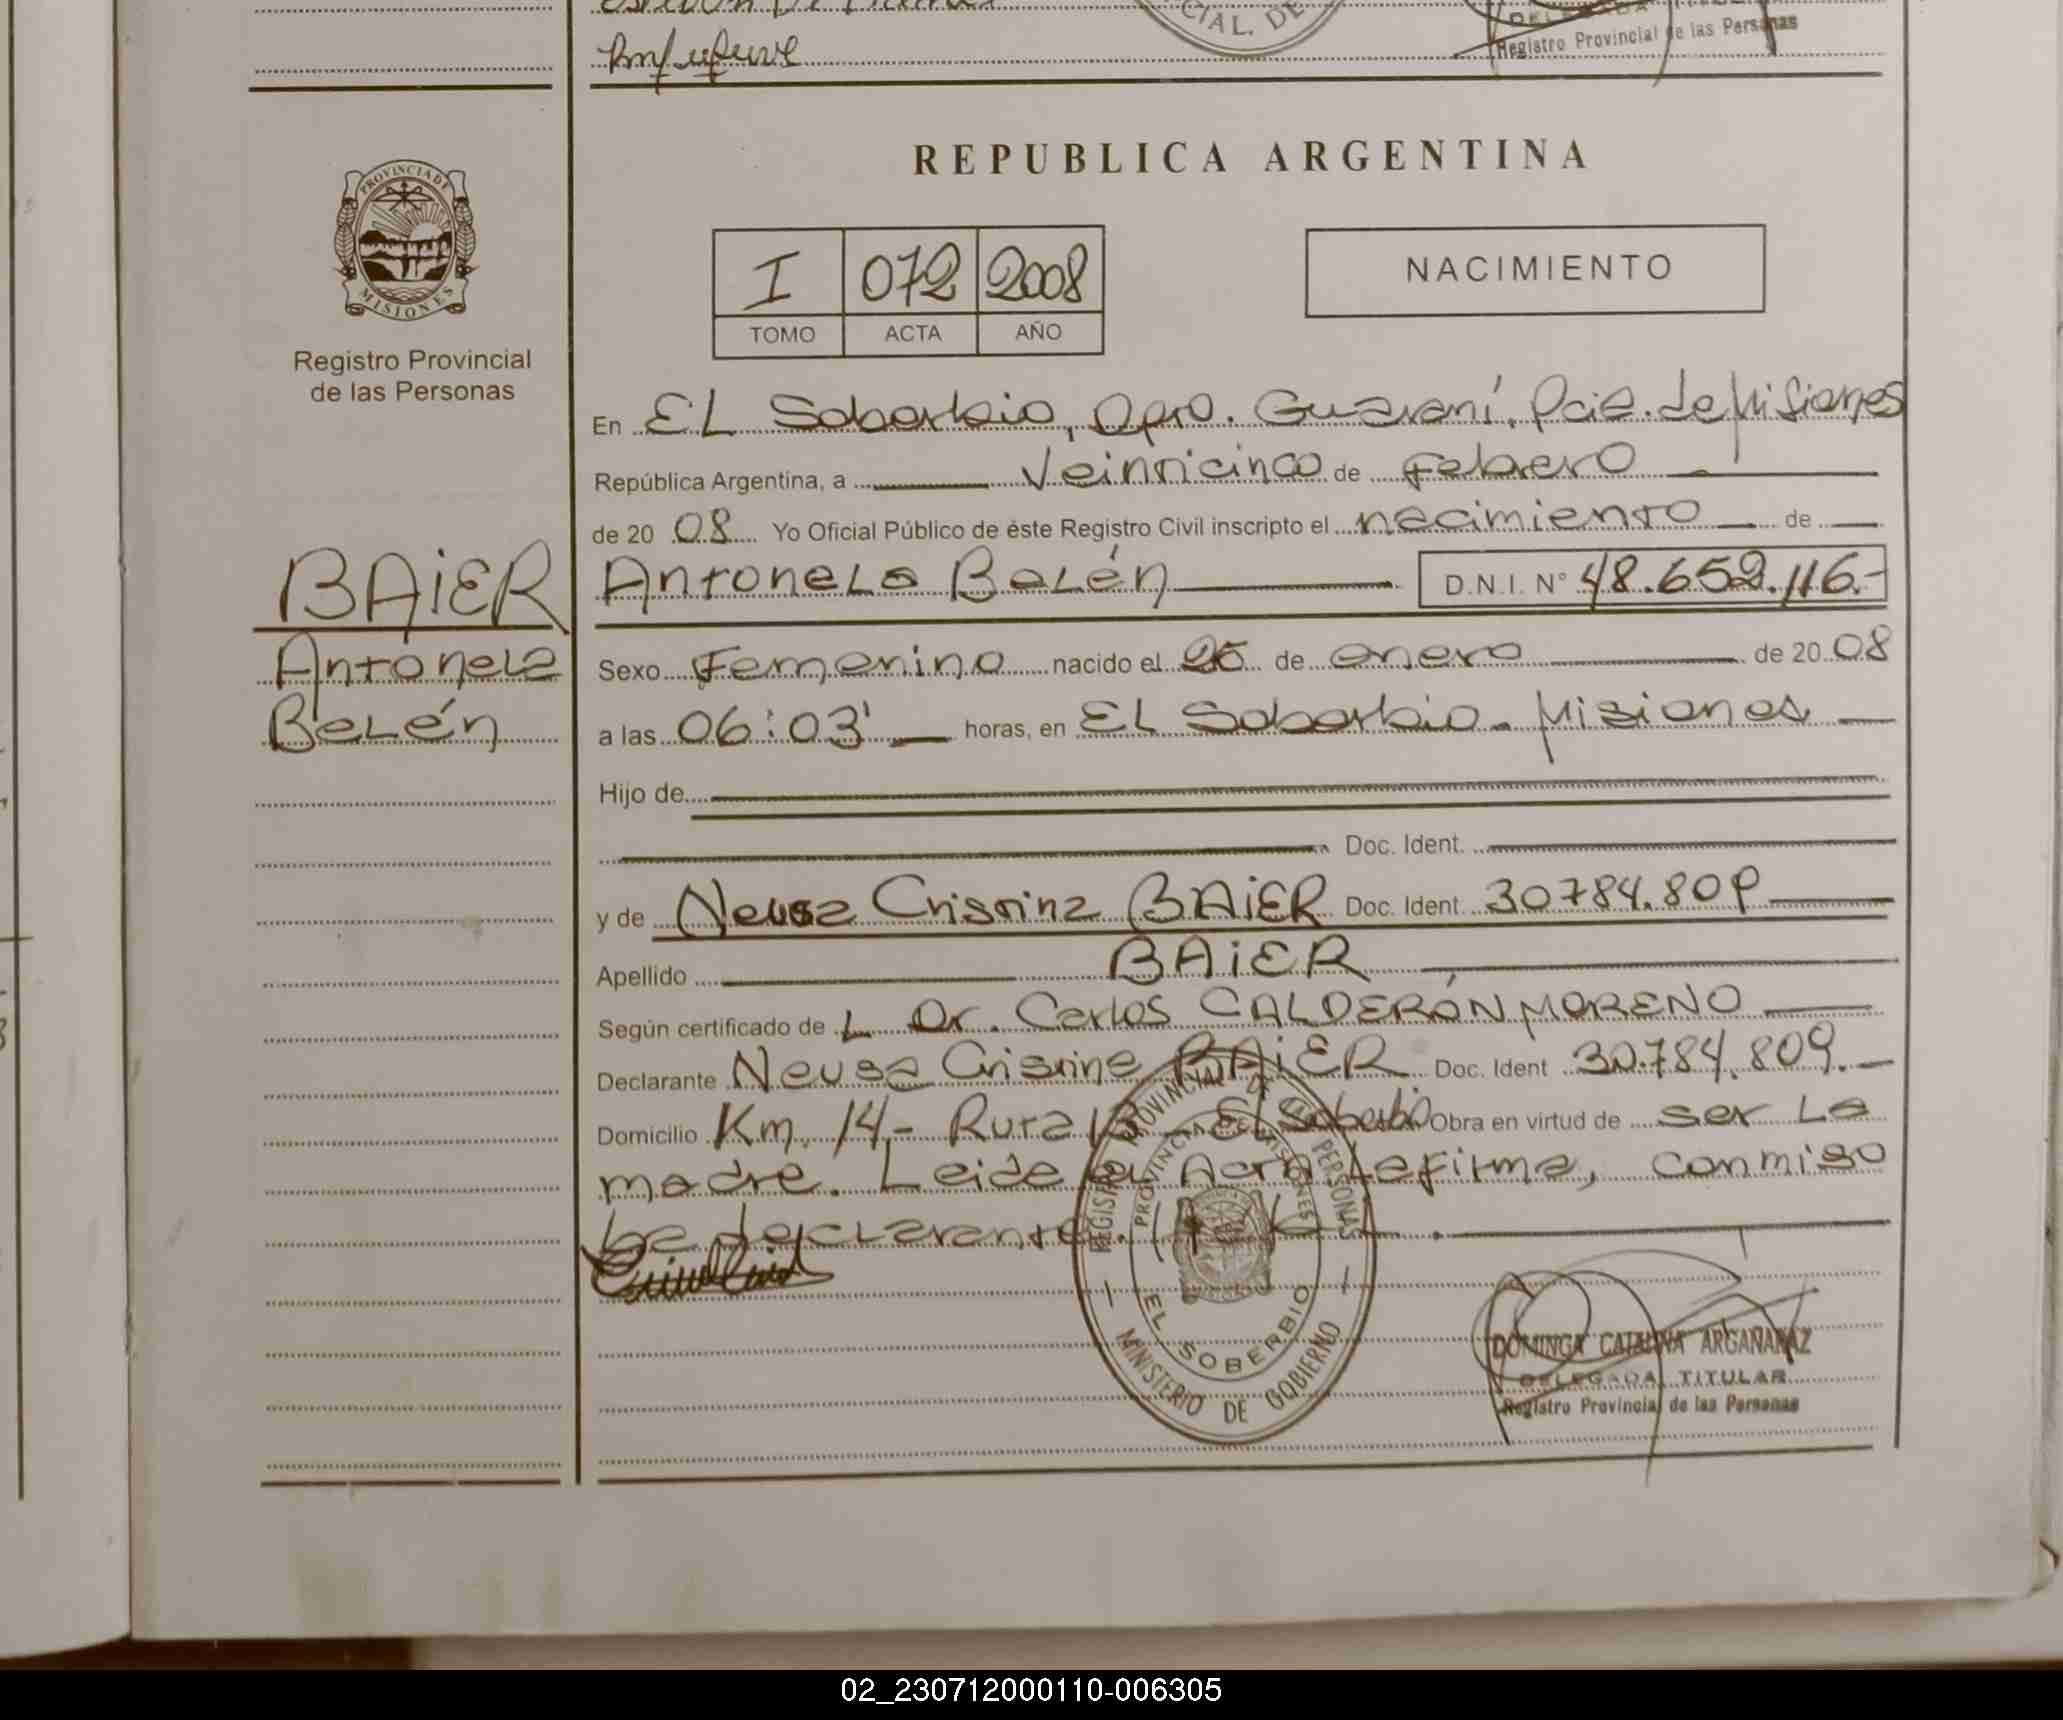 CIAL. DE
DELEGADA TITULAR
Registro Provincial de las Personas
PROVINCIA DE
MISIONES
Registro Provincial
de las Personas
REPUBLICA ARGENTINA
I 072 2008
TOMO ACTA AÑO
NACIMIENTO
En EL Soberbio, Dpto. Guaraní, Pcia. de Misiones
República Argentina, a Veinticinco de Febrero
de 20 08 Yo Oficial Público de éste Registro Civil inscripto el nacimiento de
BAiER
Antonela Belén D.N.I. Nº 48.652.116.-
Antonela
Belén
Sexo Femenino nacido el de enero de 20 08
a las 06:03' horas, en EL Soberbio - Misiones
Hijo de
Doc. Ident.
y de Neusa Cristina BAiER Doc. Ident. 30784.809
Apellido BAiER
Según certificado de L Dr. Carlos CALDERÓN MORENO
Declarante Neusa Cristina BAiER Doc. Ident 30.784.809.-
Domicilio Km. 14 - Ruta 13 - El Soberbio Obra en virtud de ser La
madre. Leida el Acta La firma, conmigo
La declarante.
REGISTRO PROVINCIAL DE LAS PERSONAS
PROVINCIA DE MISIONES
EL SOBERBIO
MINISTERIO DE GOBIERNO
DOMINGA CATALINA ARGAÑARAZ
DELEGADA TITULAR
Registro Provincial de las Personas
02_230712000110-006305